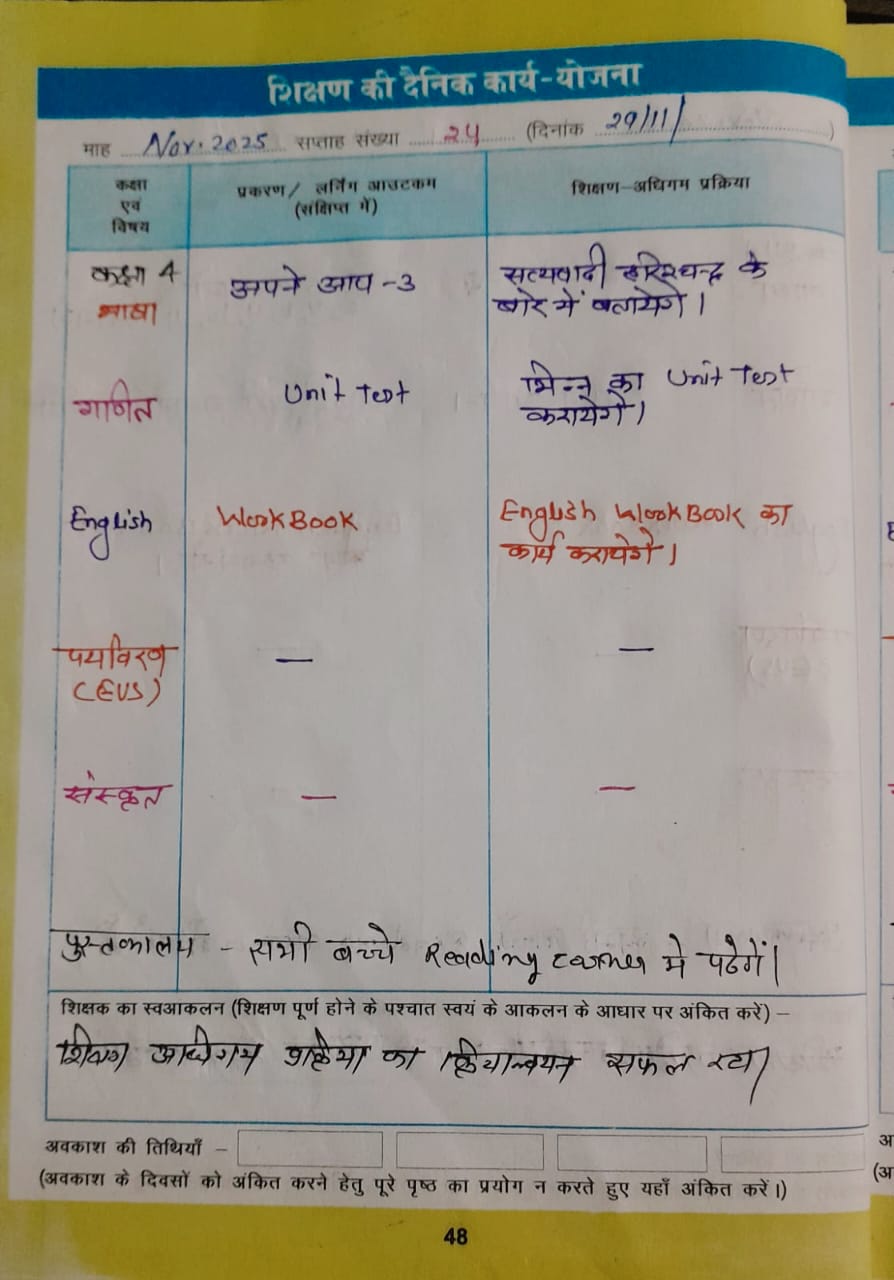 शिक्षण की दैनिक कार्य-योजना
माह Nov. 2025 सप्ताह संख्या 24 (दिनांक 29/11/ )
कक्षा एवं विषय
प्रकरण / लर्निंग आउटकम (संक्षिप्त में)
शिक्षण-अधिगम प्रक्रिया
कक्षा 4 भाषा
अपने आप -3
सत्यवादी हरिश्चन्द्र के
बारे में बतायेगे।
गणित
Unit Test
भिन्न का Unit Test
करायेगे।
English
WorkBook
English WorkBook का
कार्य करायेगे।
पर्यावरण
(EVS)
—
—
संस्कृत
—
—
पुस्तकालय - सभी बच्चे Reading corner मे पढेगें।
शिक्षक का स्वआकलन (शिक्षण पूर्ण होने के पश्चात स्वयं के आकलन के आधार पर अंकित करें) –
शिक्षण अधिगम प्रक्रिया का क्रियान्वयन सफल रहा।
अवकाश की तिथियाँ –
(अवकाश के दिवसों को अंकित करने हेतु पूरे पृष्ठ का प्रयोग न करते हुए यहाँ अंकित करें।)
48